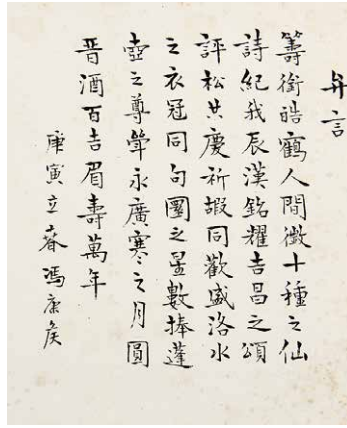 弁言
籌銜皓鶴人間徵十種之仙
詩紀我辰漢銘耀吉昌之頌
評松共慶祈嘏同歡盛洛水
之衣冠同句圖之星數捧蓬
壺之尊斝永廣寒之月圓
晋酒百吉眉壽萬年
庚寅立春馮康矦